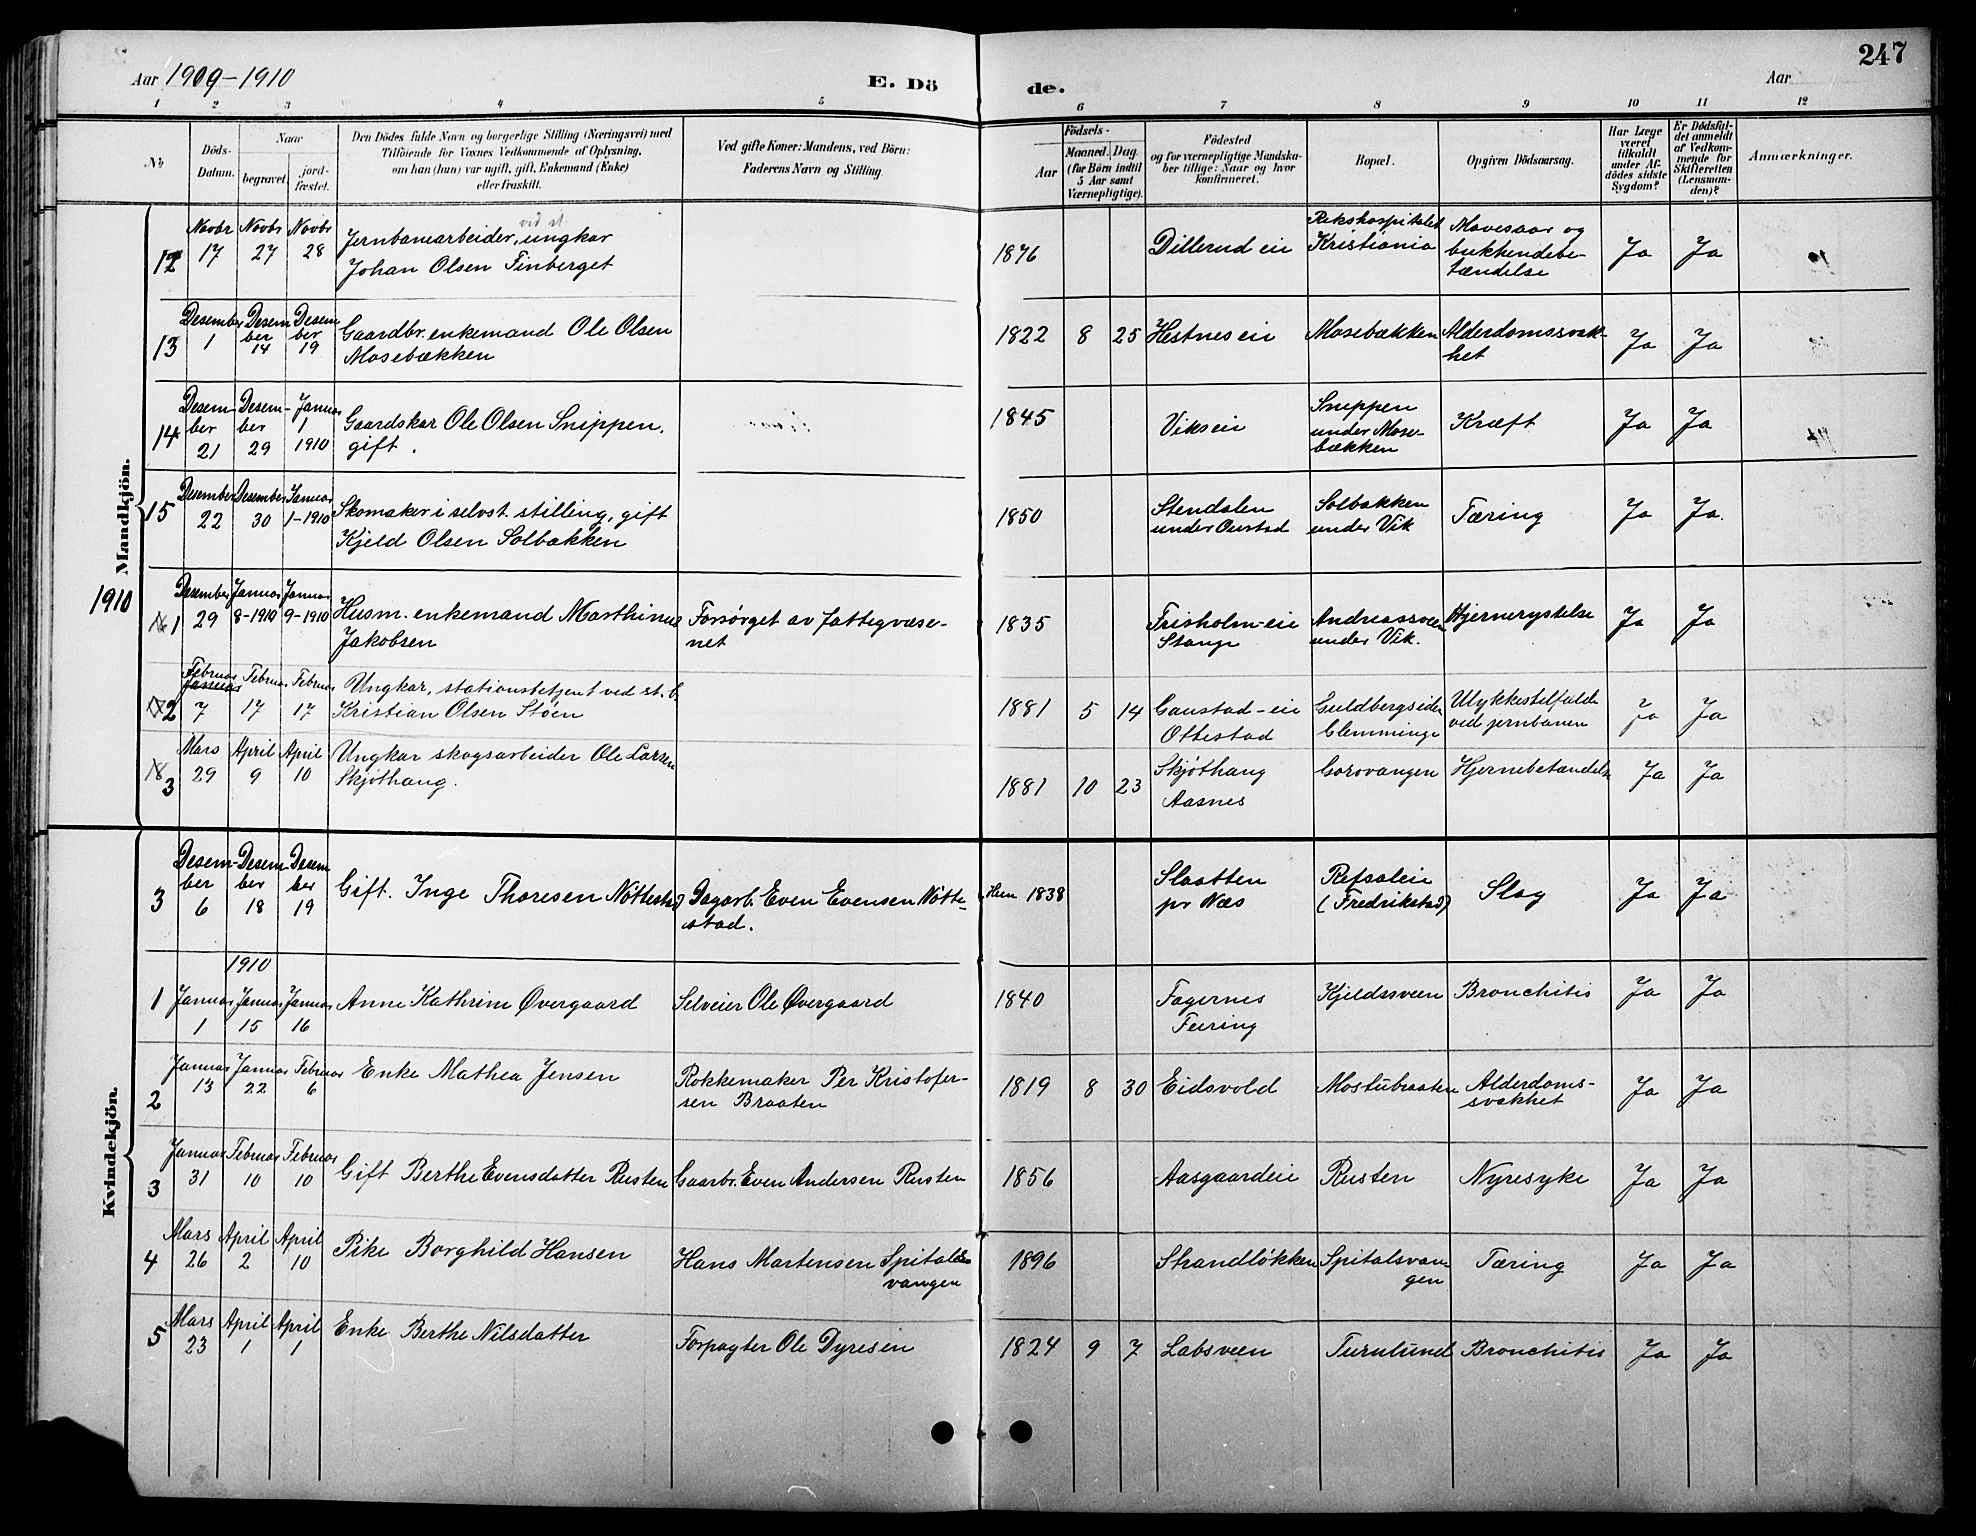 Aar 1909-1910
E. Dö
de.
Aar
247
1 2 3 4 5 6 7 8 9 10 11 12
No
Döds-
Datum.
Naar
begravet.
jord-
fæstet.
Den Dödes fulde Navn og borgerlige Stilling (Næringsvei) med
Tilföiende for Voxnes Vedkommende af Oplysning,
om han (hun) var ugift, gift, Enkemand (Enke)
eller fraskilt.
Ved gifte Koner: Mandens, ved Börn:
Faderens Navn og Stilling
Födsels-
Aar
Maaned. Dag.
(for Börn indtil
5 Aar samt
Værnepligtige).
Födested
og for værnepligtige Mandska-
ber tillige: Naar og hvor
konfirmeret.
Bopæl.
Opgiven Dödsaarsag.
Har Læge
været
tilkaldt
under Af-
dödes sidste
Sygdom?
Er Dödsfal-
det anmeldt
af Vedkom-
mende for
Skifteretten
(Lensman-
den)?
Anmærkninger.
Mandkjön.
12 Novbr 17 Novbr 27 Novbr 28 Jernbanearbeider, ungkar
Johan Olsen Finberget
1876 Dillerud eie Rikshospitalet
Kristiania Mavesaar og
bukhendebe-
tændelse Ja Ja
13 Desember 1 Desember 14 Desember 19 Gaardbr. enkemand Ole Olsen
Mosebækken
1822 8 25 Hestnes eie Mosebækken Alderdomssvak-
het Ja Ja
14 Desember 21 Desember 29 Januar 1 1910 Gaardskar Ole Olsen Snippen,
gift.
1845 Viks eie Snippen
under Mose-
bækken Kræft Ja Ja
15 Desember 22 Desember 30 Januar 1-1910 Skomaker i selvst. stilling, gift
Kjeld Olsen Solbakken
1850 Stendalen
under Oustad Solbakken
under Vik Tæring Ja Ja.
1910
1 Desember 29 Januar 8-1910 Januar 9-1910 Husm. enkemand Marthinus
Jakobsen Forsørget av fattigvæse-
net
1835 Frisholm-eie
Stange Andreassveen
under Vik. Hjernerystelse Ja Ja
2 Februar 7 Februar 17 Februar 17 Ungkar, stationsbetjent ved st. b.
Kristian Olsen Støen
1881 5 14 Gaustad-eie
Ottestad Guldbergsiden
Glemminge Ulykkestilfælde
ved jernbanen Ja Ja
18 3 Mars 29 April 9 April 10 Ungkar skogsarbeider Ole Larsen
Skjøthaug.
1881 10 23 Skjøthaug
Aasnes Gorovangen Hjernebetændelse Ja Ja
Kvindekjön.
3 Desember 6 Desember 18 Desember 19 Gift. Inge Thoresen Nøttestad Dagarb. Even Evensen Nøtte-
stad.
1838 Slaatten
pr Næs Refsaleie
(Fredrikstad) Slag Ja Ja
1910
1 Januar 1 Januar 15 Januar 16 Anne Kathrine Øvergaard Selveier Ole Øvergaard
1840 Fagernes
Feiring Kjeldssveen Bronchitis Ja Ja
2 Januar 13 Januar 22 Februar 6 Enke Mathea Jensen Rokkemaker Per Kristofer-
sen Braaten
1819 8 30 Eidsvold Mostubraaten Alderdoms-
svakhet Ja Ja
3 Januar 31 Februar 10 Februar 10 Gift Berthe Evensdatter Rusten Gaarbr. Even Andersen Rusten
1856 Aasgaardeie Rusten Nyresyke Ja Ja
4 Mars 26 April 2 April 10 Pike Borghild Hansen Hans Martensen Spitals-
vangen
1896 Strandløkken Spitalsvan-
gen Tæring Ja Ja
5 Mars 23 April 1 April 1 Enke Berthe Nilsdatter Forpagter Ole Dyresen
1824 9 7 Labsveen Turulund Bronchitis Ja Ja